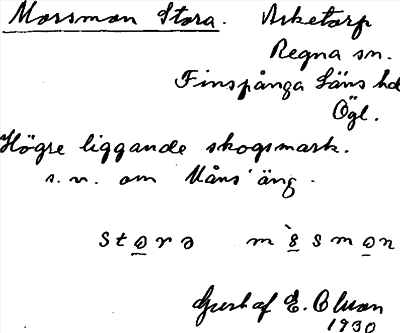 Mossmon Stora. Asketorp
Regna sn.
Finspånga Läns hd
Ögl.
Högre liggande skogsmark.
s.v. om Måns' äng.
stọrə mə̀smọn
Gustaf E. Olwon
1930